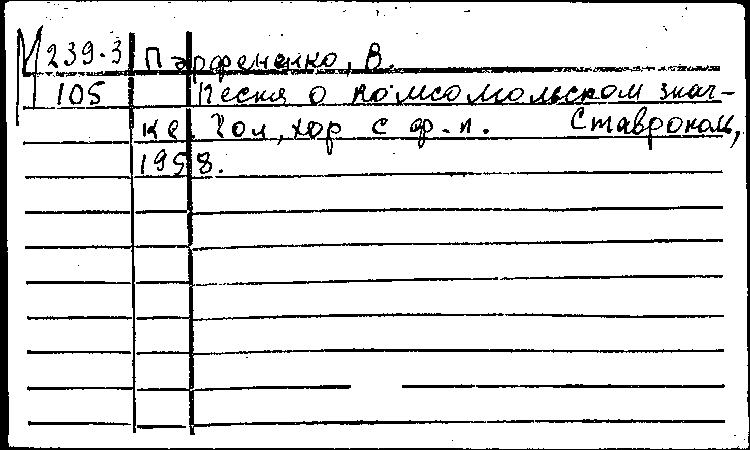 М 239-3 Парфененко, В.
105 Песня о комсомольском знач-
ке. Гол, хор с ф.-п. Ставрополь,
1958.